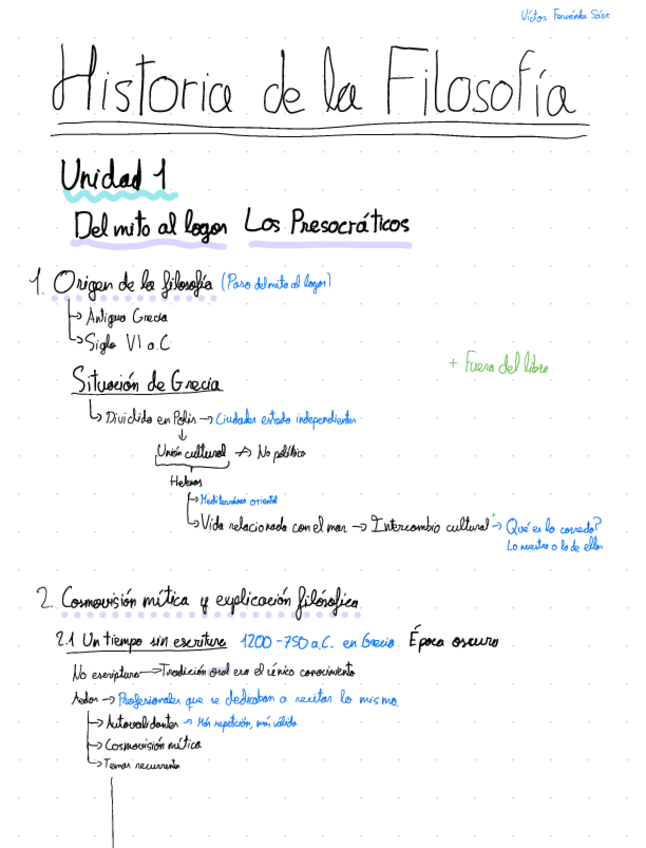 Víctor Fernández Sáez
Historia de la Filosofía
Unidad 1
Del mito al logos Los Presocráticos
1. Origen de la filosofía (Paso del mito al logos)
↳ Antigua Grecia
↳ Siglo VI a.C
+ Fuera del libro
Situación de Grecia
↳ Dividida en Polis → Ciudades estado independientes
↓
Unión cultural → No política
Helenos
↳ Mediterráneo oriental
↳ Vida relacionada con el mar → Intercambio cultural + → Qué es lo correcto?
Lo nuestro o lo de ellos
2. Cosmovisión mítica y explicación filósofica
2.1 Un tiempo sin escritura 1200-750 a.C. en Grecia Época oscura
No escriptura → Tradición oral era el único conocimiento
Aedos → Profesionales que se dedicaban a recitar lo mismo.
↳ Autovalidantes → Más repetición, más válido
↳ Cosmovisión mítica
↳ Temas recurrentes